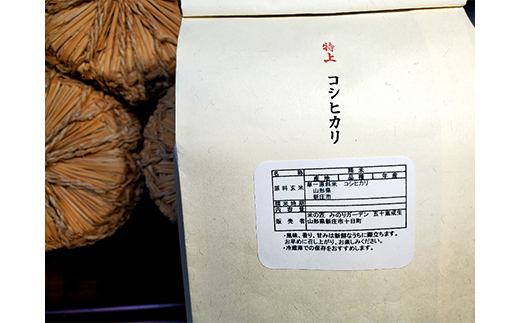 特上
コシヒカリ
名称 精米
産地 品種 年産
原料玄米 単一原料米 コシヒカリ
山形県
新庄市
精米時期
内容量
販売者 米の匠 みのりガーデン 五十嵐成生
山形県新庄市十日町
・風味、香り、甘みは新鮮なうちに際立ちます。
お早めに召し上がり、お楽しみください。
・冷蔵庫での保存をおすすめします。